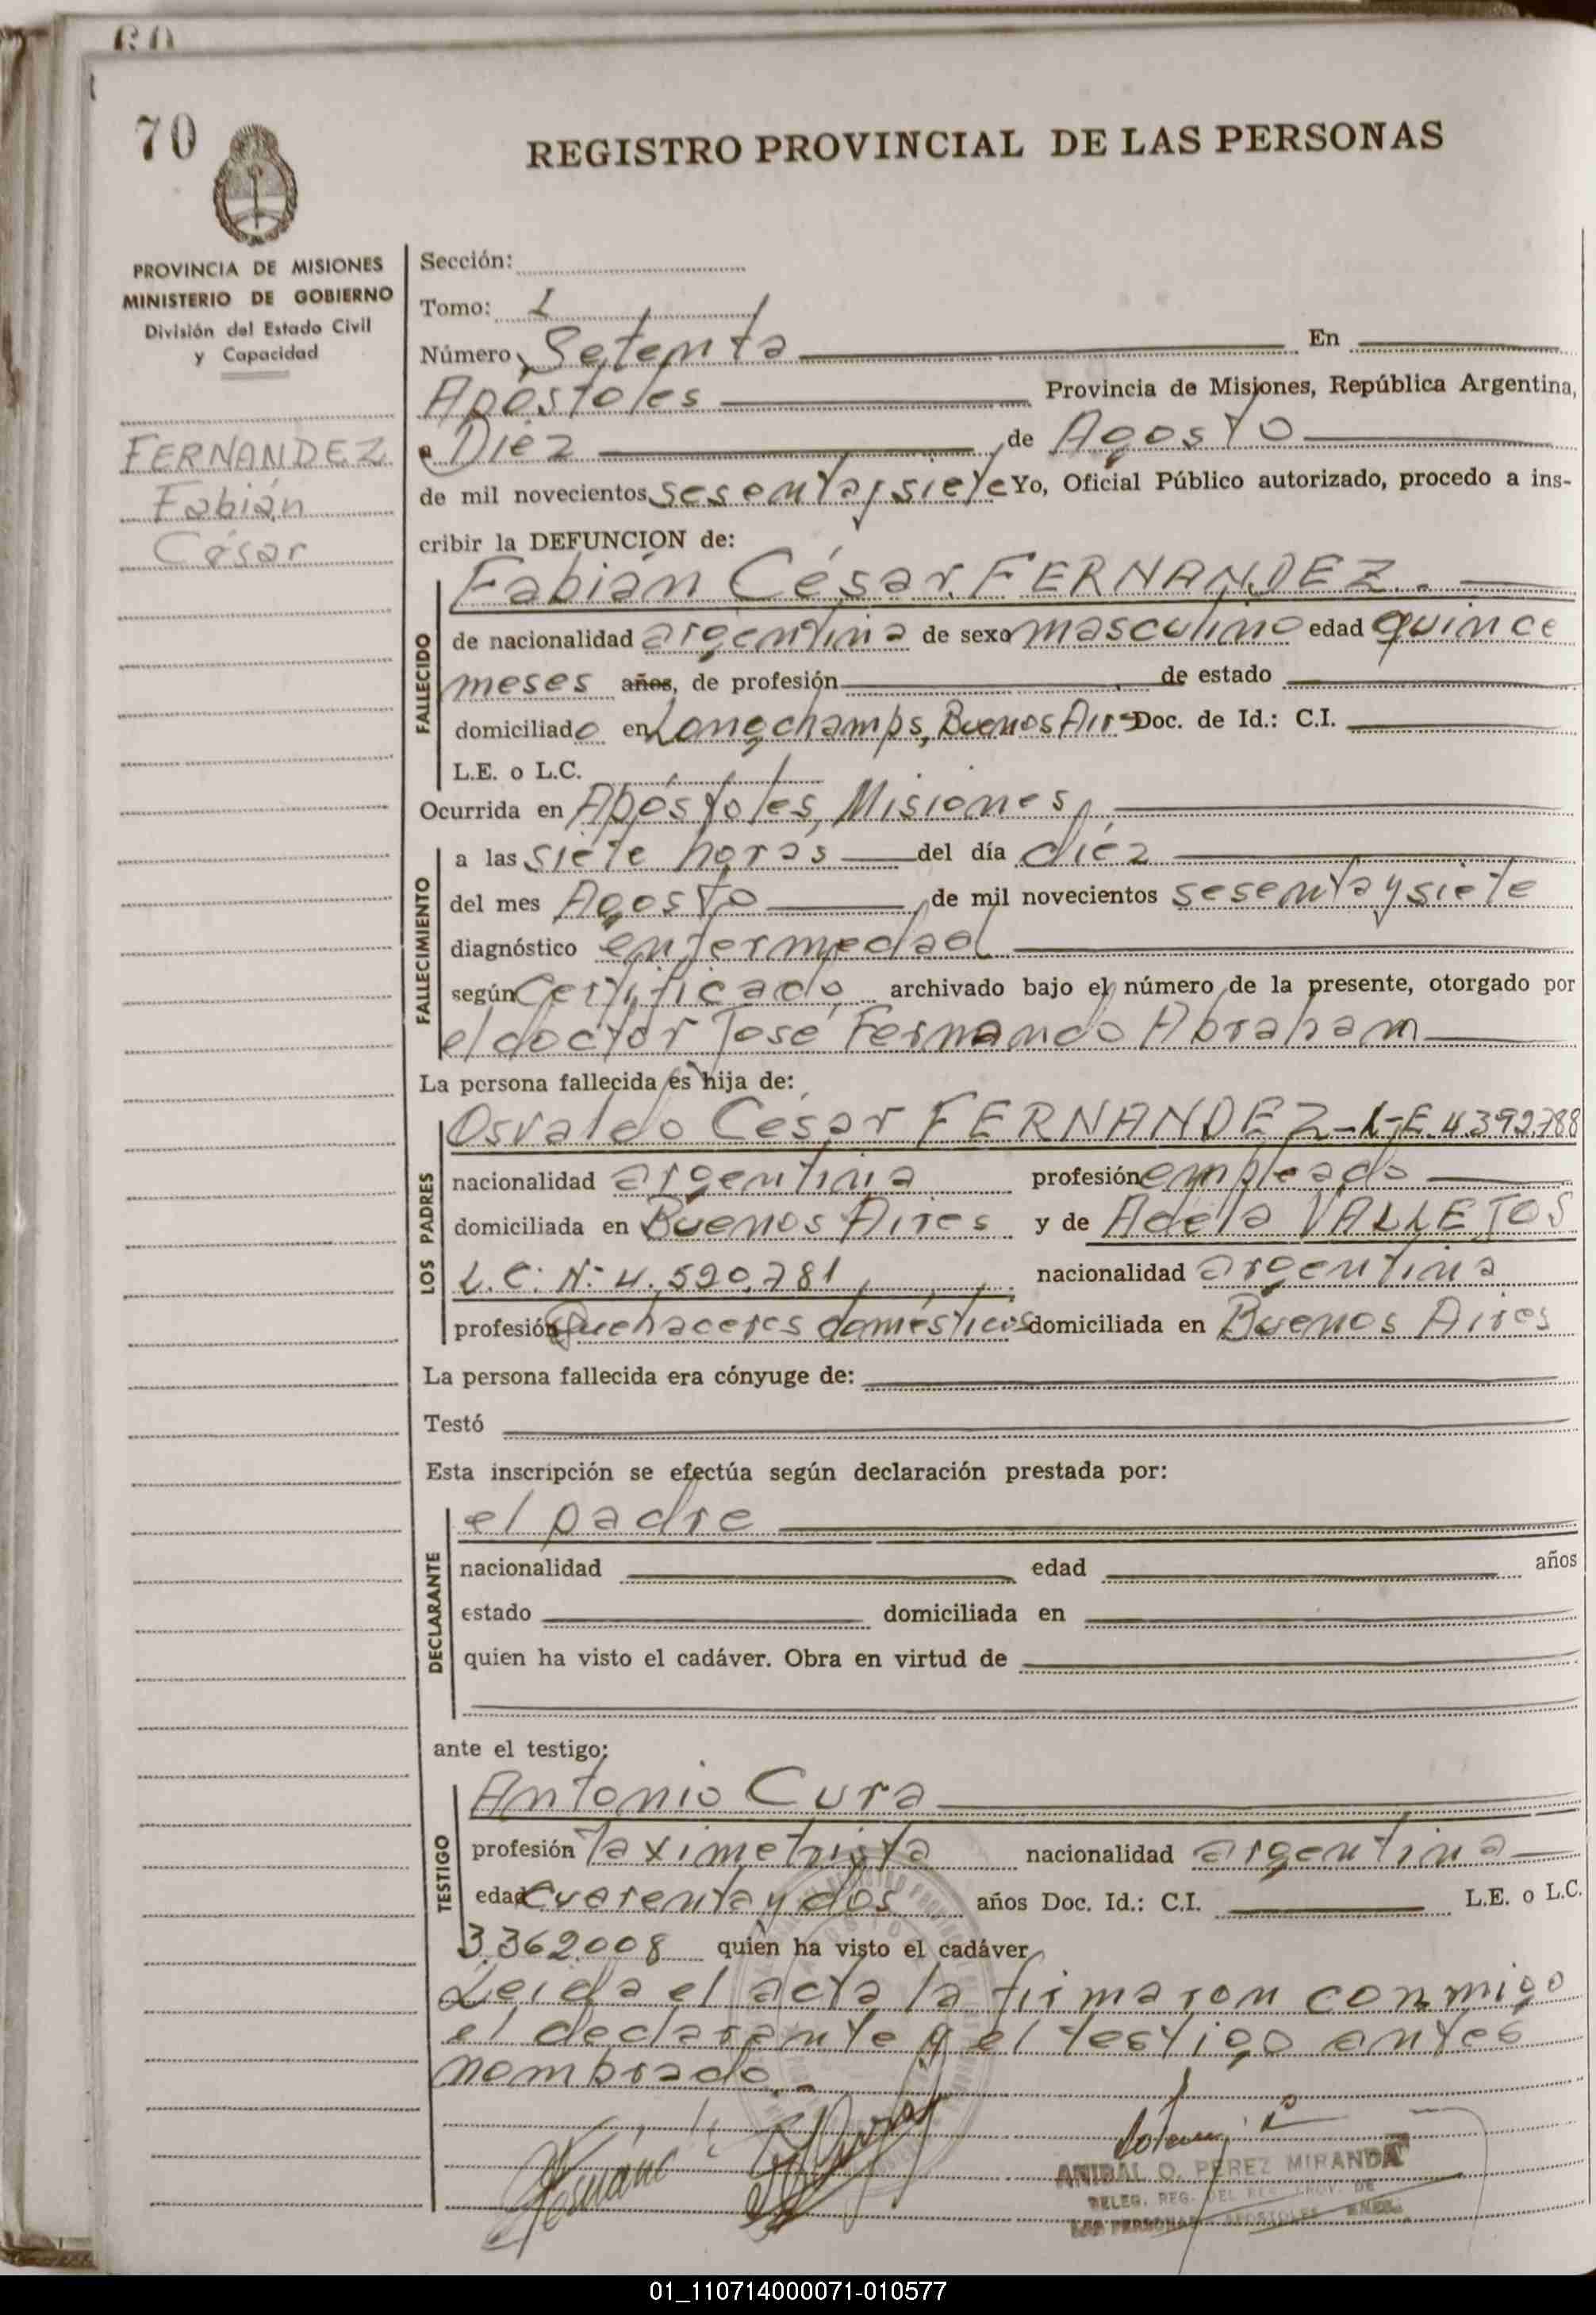 70
REGISTRO PROVINCIAL DE LAS PERSONAS
PROVINCIA DE MISIONES
MINISTERIO DE GOBIERNO
División del Estado Civil
y Capacidad
FERNANDEZ
Fabián
César
Sección:
Tomo: I
Número Setenta En
Apóstoles Provincia de Misiones, República Argentina,
a Diez de Agosto
de mil novecientos sesenta y siete Yo, Oficial Público autorizado, procedo a ins-
cribir la DEFUNCION de:
FALLECIDO
Fabián César FERNANDEZ.
de nacionalidad argentina de sexo masculino edad quince
meses años, de profesión de estado
domiciliado en Longchamps, Buenos Aires Doc. de Id.: C.I.
L.E. o L.C.
Ocurrida en Apóstoles, Misiones
FALLECIMIENTO
a las siete horas del día diez
del mes Agosto de mil novecientos sesenta y siete
diagnóstico enfermedad
según Certificado archivado bajo el número de la presente, otorgado por
el doctor José Fernando Abraham
La persona fallecida es hija de:
LOS PADRES
Osvaldo César FERNANDEZ - L-E. 4.392.788
nacionalidad argentina profesión empleado
domiciliada en Buenos Aires y de Adela VALLEJOS
L.C. Nº 4.520.781 nacionalidad argentina
profesión Quehaceres domésticos domiciliada en Buenos Aires
La persona fallecida era cónyuge de:
Testó
Esta inscripción se efectúa según declaración prestada por:
DECLARANTE
el padre
nacionalidad edad años
estado domiciliada en
quien ha visto el cadáver. Obra en virtud de
ante el testigo:
TESTIGO
Antonio Cura
profesión Taximetrista nacionalidad argentina
edad cuarenta y dos años Doc. Id.: C.I. L.E. o L.C.
3.362.008 quien ha visto el cadáver
Leída el acta la firmaron conmigo
el declarante y el testigo antes
nombrado.-
ANIBAL O. PEREZ MIRANDA
DELEG. REG. DEL REG. PROV. DE
LAS PERSONAS APOSTOLES
01_110714000071-010577